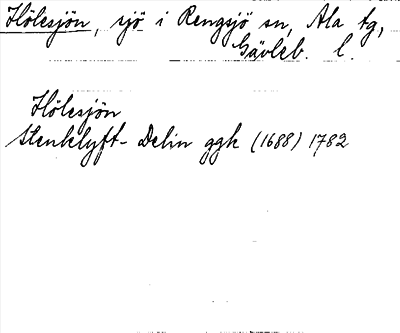 Hölesjön, sjö i Rengsjö sn, Ala tg,
Gävleb. l.
Hölesjön
Stenklyft-Delin ggk (1688) 1782